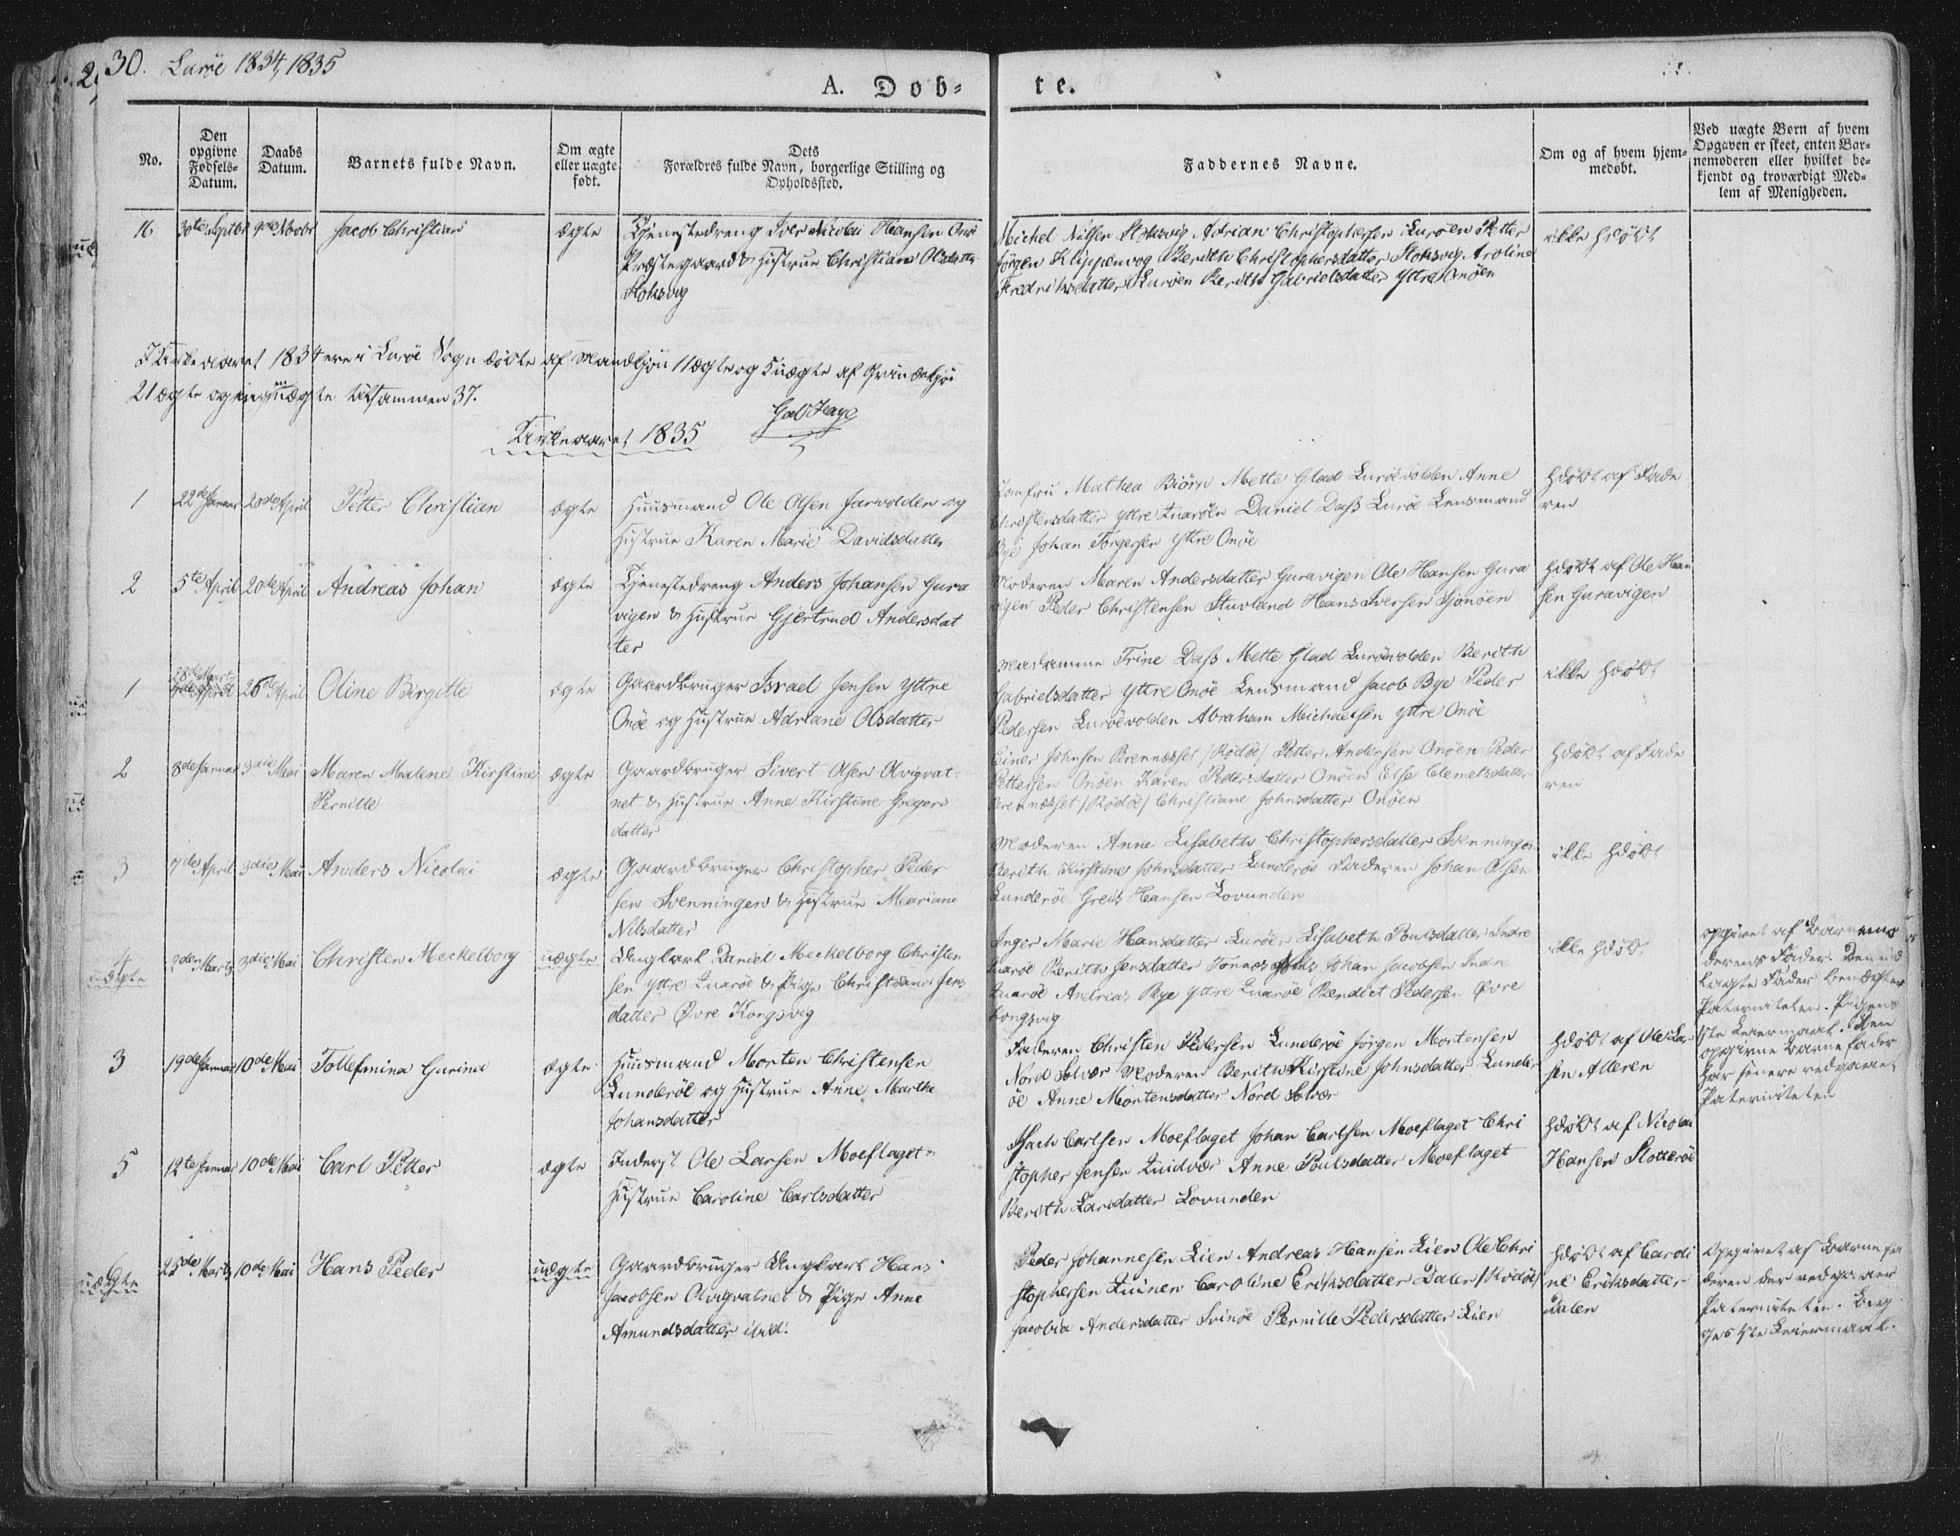 30. Lurøe 1834, 1835
A. Dob-
te.
No.
Den opgivne Fødsels-Datum.
Daabs Datum.
Barnets fulde Navn.
Om ægte eller uægte født.
Dets Forældres fulde Navn, borgerlige Stilling og Opholdssted.
Faddernes Navne.
Om og af hvem hjem-medøbt.
Ved uægte Børn af hvem Opgaven er skeet, enten Bar-nemoderen eller hvilket be-kjendt og troværdigt Med-lem af Menigheden.
16 30te Septbr 9de Novbr Jacob Christian ægte Tjenestedreng Iver Nicolai Hansen Onø
Præstegaard & Hustrue Christiane Olsdatter
Stoksvig
Michel Nilsen Stoksvig Adrian Christophersen Lurøen Petter
Jørgen Klippenvog Berith Christophersdatter Stoksvig Aroline
Fredriksdatter Lurøen Berith Gabrielsdatter Yttre Onøen
ikke Hdøbt
I Kirkeaaret 1834 ere i Lurøe Sogn døbte af Mandkjøn 11 ægte og 5 uægte af Qvindekjøn
21 ægte og ingen uægte tilsammen 37.
Kirkeaaret 1835
1 22de Januar 20de April Petter Christian ægte Huusmand Ole Olsen
Hustrue Karen Marie Davidsdatter
Jomfru Mathea Biørn Mette Glad Lurøevolden Anne
Christensdatter Yttre Quarøen Daniel Dass Lurøe Lensmand
Bye Johan Torgersen Yttre Onøe
Hdøbt af Fade
ren
2 5te April 20de April Andreas Johan ægte Tjenestedreng Anders Johansen Gura
vigen & Hustrue Gjertrud Andersdat
ter
Moderen Maren Andersdatter Guravigen Ole Hansen Gura
vigen Peder Christensen Stuvland Hans Iversen Sjonøen
Hdøbt af Ole Han
sen Guravigen
1 28de Marts 26de April Oline Birgitte ægte Gaardbruger Israel Jensen Yttre
Onøe og Hustrue Adriane Olsdatter
Madamme Trine Dass Mette Glad Lurøevolden Berith
Gabrielsdatter Yttre Onøe Lensmand Jacob Bye Peder
Pedersen Lurøevolden Abraham Michaelsen Yttre Onøe
ikke Hdøbt
2 8de Januar 3die Mai Maren Malene Kirstine
Pernille
ægte Gaardbruger Sivert Olsen Olvigvat-
net & Hustrue Anne Kirstine Gregers
datter
Einer Johnsen Brennesset /Rødøe/ Petter Andersen Onøen Peder
Pettersen Onøen Karen Pedersdatter Onøen Else Clemetsdatter
Brennesset /Rødøe/ Christiane Johnsdatter Onøen
Hdøbt af Fade
ren
3 7de April 3die Mai Anders Nicolai ægte Gaardbruger Christopher Peder
sen Svenningen & Hustrue Mariane
Nilsdatter
Moderen Anne Lisabeth Christophersdatter Svenningen
Berith Kirstine Johnsdatter Lunderøe Faderen Johan Olsen
Lunderøe Greis Hansen Lovunden
ikke Hdøbt
4 uægte 2den Marts 3die Mai Christen Meckelborg uægte Ungkarl Daniel Meckelborg Christen
sen Yttre Quarøe & Pige Christiane Jens
datter Øvre Kongsvig
Inger Marie Hansdatter Lurøen Lisabeth Poulsdatter Indre
Quarøe Berith Jensdatter Tonnes Johan Jacobsen Indre
Quarøe Andreas Bye Yttre Quarøe Bendict Pedersen Øvre
Kongsvig
ikke Hdøbt
opgivet af Barnemo
derens Fader. Den ud
lagte Fader benægter
Paterniteten. Pigens
1ste Leiermaal. Den
opgivne Barnefader
har senere vedgaaet
Paterniteten
3 19de Januar 10de Mai Tollefmina Gurina ægte Huusmand Morten Christensen
Lunderøe og Hustrue Anne Martha
Johansdatter
Faderen Christen Pedersen Lunderøe Jørgen Mortensen
Nord Solvær Moderen Berith Kirstine Johnsdatter Lunder
øe Anne Mortensdatter Nord Solvær
Hdøbt af Ole Lar
sen Alteren
5 12te Januar 10de Mai Carl Petter ægte Inderst Ole Larsen Moeflaget
Hustrue Caroline Carlsdatter
Isach Carlsen Moeflaget Johan Carlsen Moeflaget Chri
stopher Jensen Quidvær Anne Poulsdatter Moeflaget
Berith Larsdatter Lovunden
Hdøbt af Nicolai
Hansen Slotterøe
6 uægte 25de Marts 10de Mai Hans Peder uægte Gaardbruger Ungkarl Hans
Jacobsen Olvigvatnet & Pige Anne
Amundsdatter ibid:
Peder Johannesen Lien Andreas Hansen Lien Ole Chri
stophersen Quinen Caroline Eriksdatter Dalen /Rødøe/
Jacobia Andersdatter Svinøe Pernille Pedersdatter Lien
Hdøbt af Cardi
ne Eriksdatter
Dalen
Opgivet af Barnefa
deren der vedgaaer
Paterniteten. Beg
ges 1ste Leiermaal.